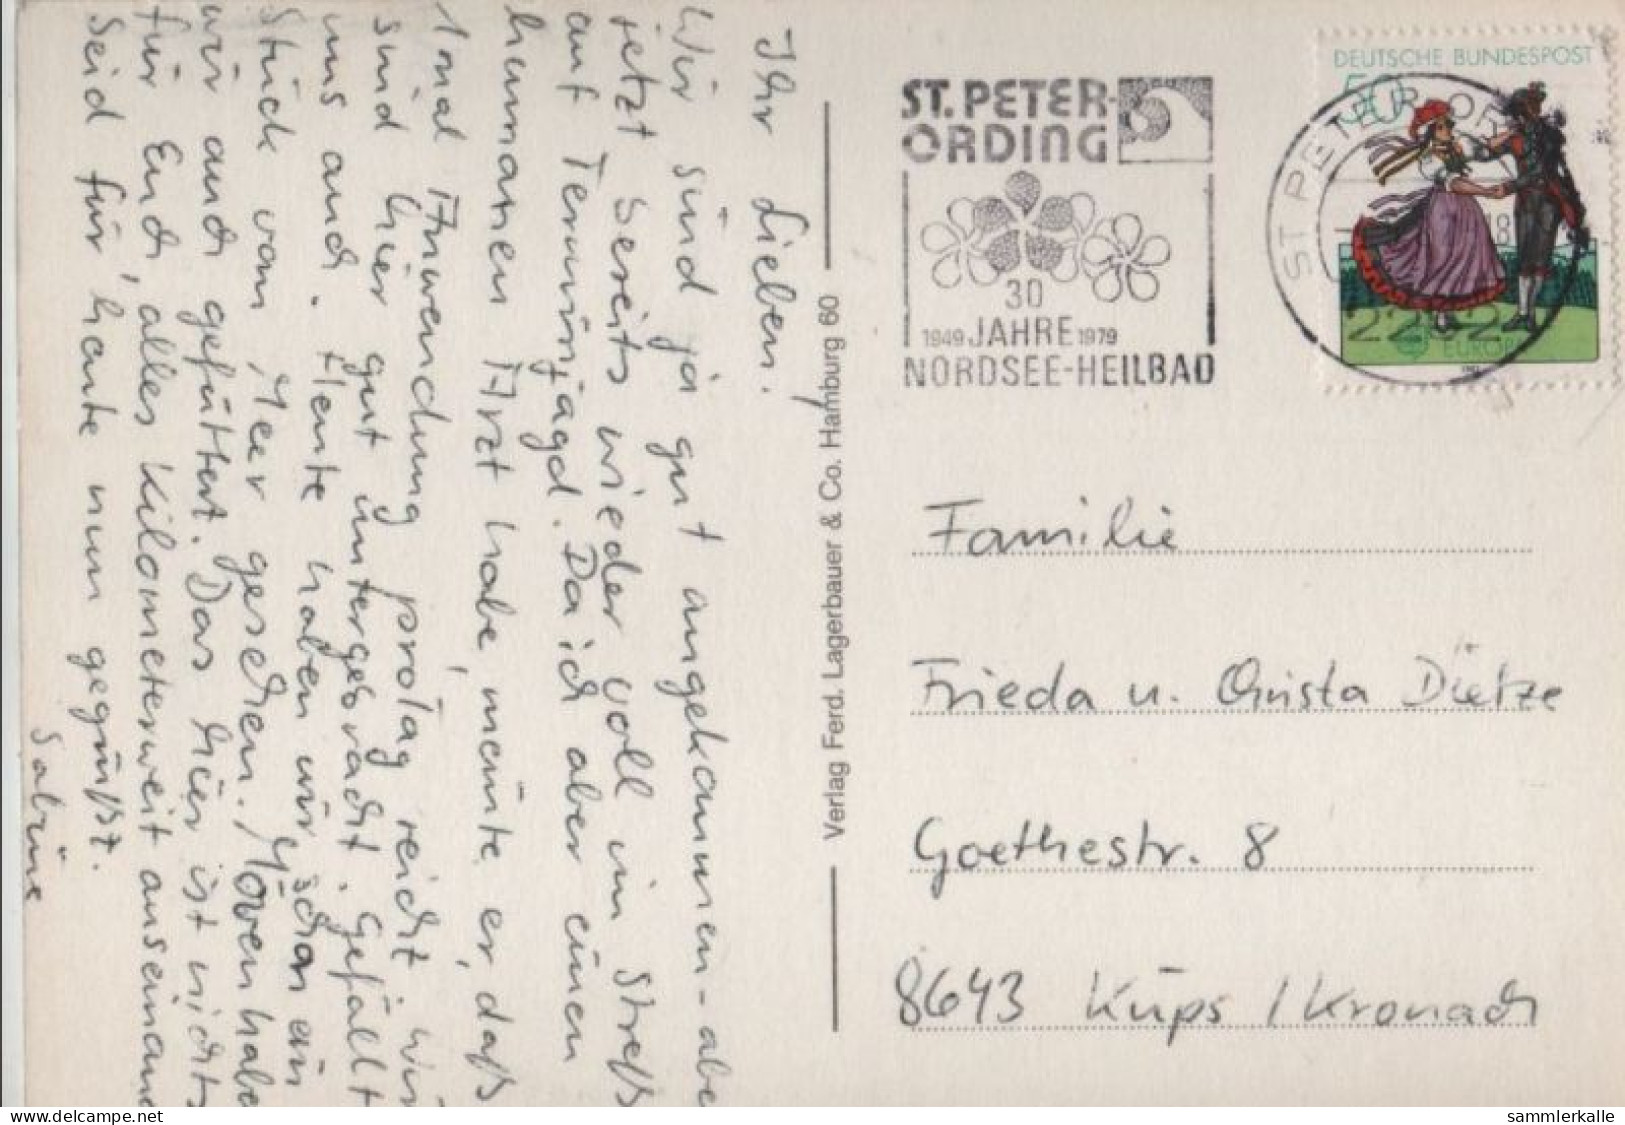 Ihr Lieben.
Wir sind ja gut angekommen - abe
jetzt bereits wieder voll im Streß
auf Terminjagd. Da ich aber einen
humanen Arzt habe, meinte er, daß
1 mal Anwendung pro Tag reicht. Wir
sind hier gut untergebracht. Gefällt
uns auch. Heute haben wir schon ein
Stück vom Meer gesehen. Möven habe
wir auch gefüttert. Das hier ist nichts
für Euch, alles kilometerweit auseinand
Seid für heute nun gegrüßt.
Sabine
Verlag Ferd. Lagerbauer & Co. Hamburg 60
ST. PETER-
ORDING
30
1949 JAHRE 1979
NORDSEE-HEILBAD
DEUTSCHE BUNDESPOST
50
EUROPA
ST PETER-OR
2252
Familie
Frieda u. Christa Dietze
Goethestr. 8
8643 Küps / Kronach
www.delcampe.net
sammlerkalle